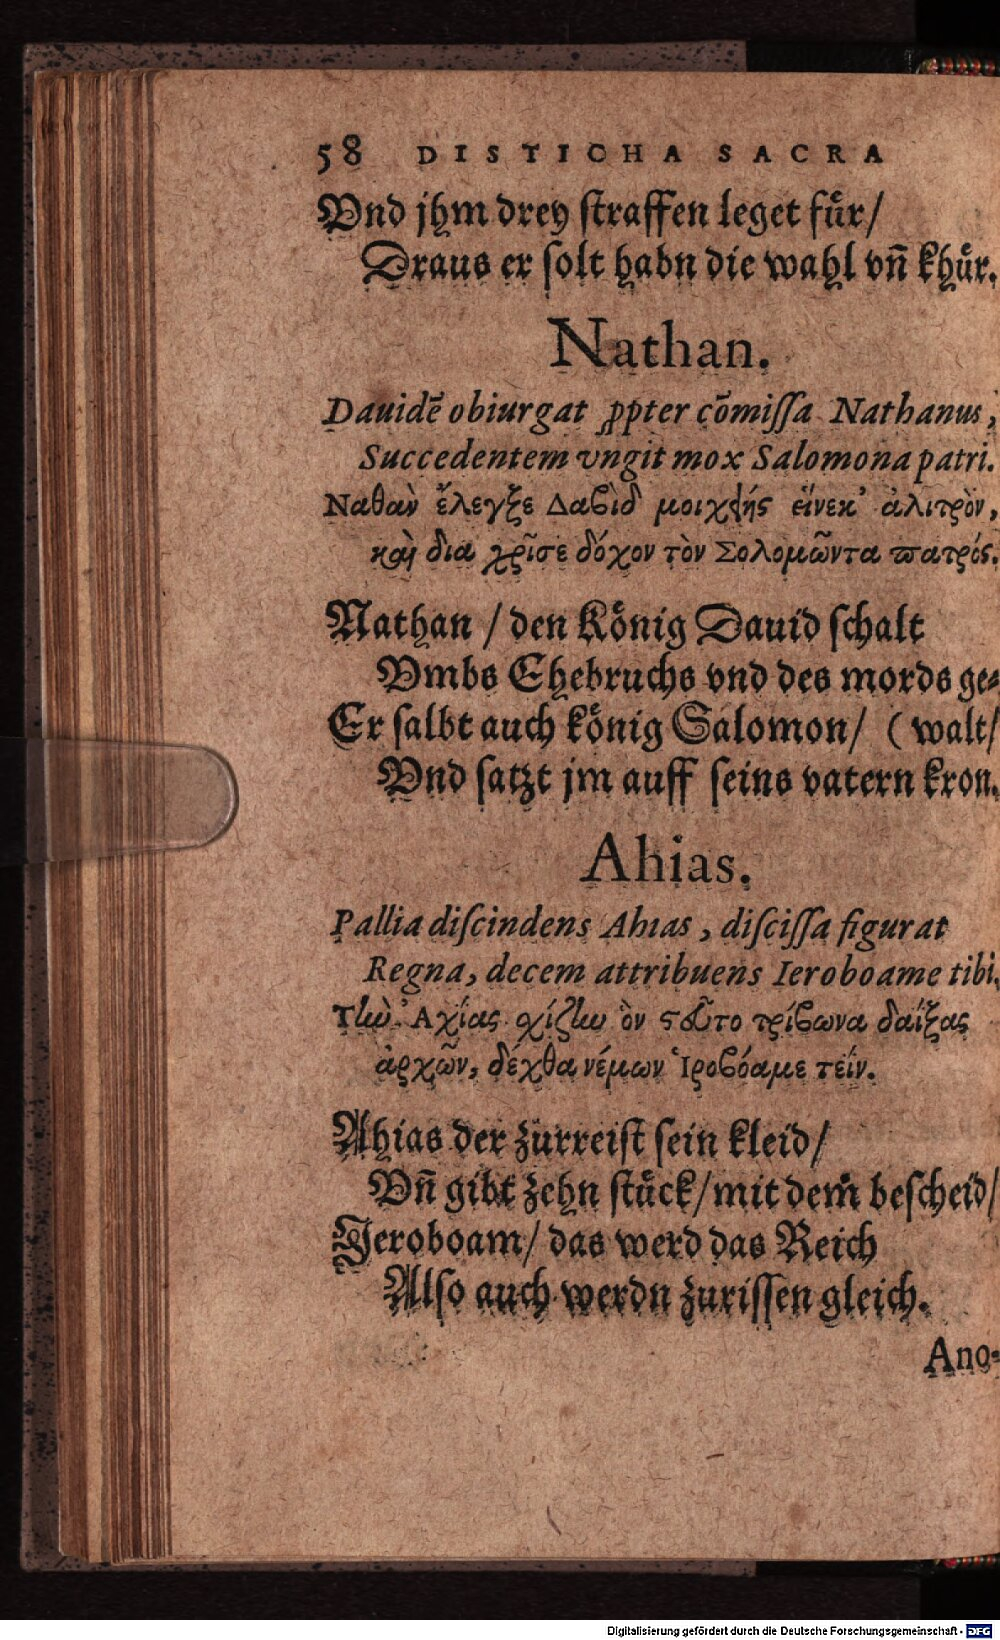 58 DISTICHA SACRA
Vnd jhm drey ſtraffen leget fuͤr/
Draus er ſolt habn die wahl vñ khuͤr.
Nathan.
Dauidẽ obiurgat ꝓpter cõmiſſa Nathanus,
Succedentem vngit mox Salomona patri.
Ναθὰν ἔλεγξε Δαβὶδ μοιχῆς εἵνεκ' ἀλιτρὸν,
καὶ δῖα χρῖσε δόχον τὸν Σολομῶντα πατρός.
Nathan / den Koͤnig Dauid ſchalt
Vmbs Ehebruchs vnd des mords ge⸗
Er ſalbt auch koͤnig Salomon/ (walt/
Vnd ſatzt jm auff ſeins vatern kron.
Ahias.
Pallia diſcindens Ahias, diſciſſa figurat
Regna, decem attribuens Ieroboame tibi.
Τὴν Ἀχίας σχίζην ὃν τοῦτο τρίβωνα δαΐξας
ἀρχῶν, δέχθα νέμων Ἱροβόαμε τεΐν.
Ahias der zurreiſt ſein kleid/
Vñ gibt zehn ſtuͤck/mit dem beſcheid/
Jeroboam/ das werd das Reich
Alſo auch werdn zuriſſen gleich.
Ano-
Digitalisierung gefördert durch die Deutsche Forschungsgemeinschaft - DFG